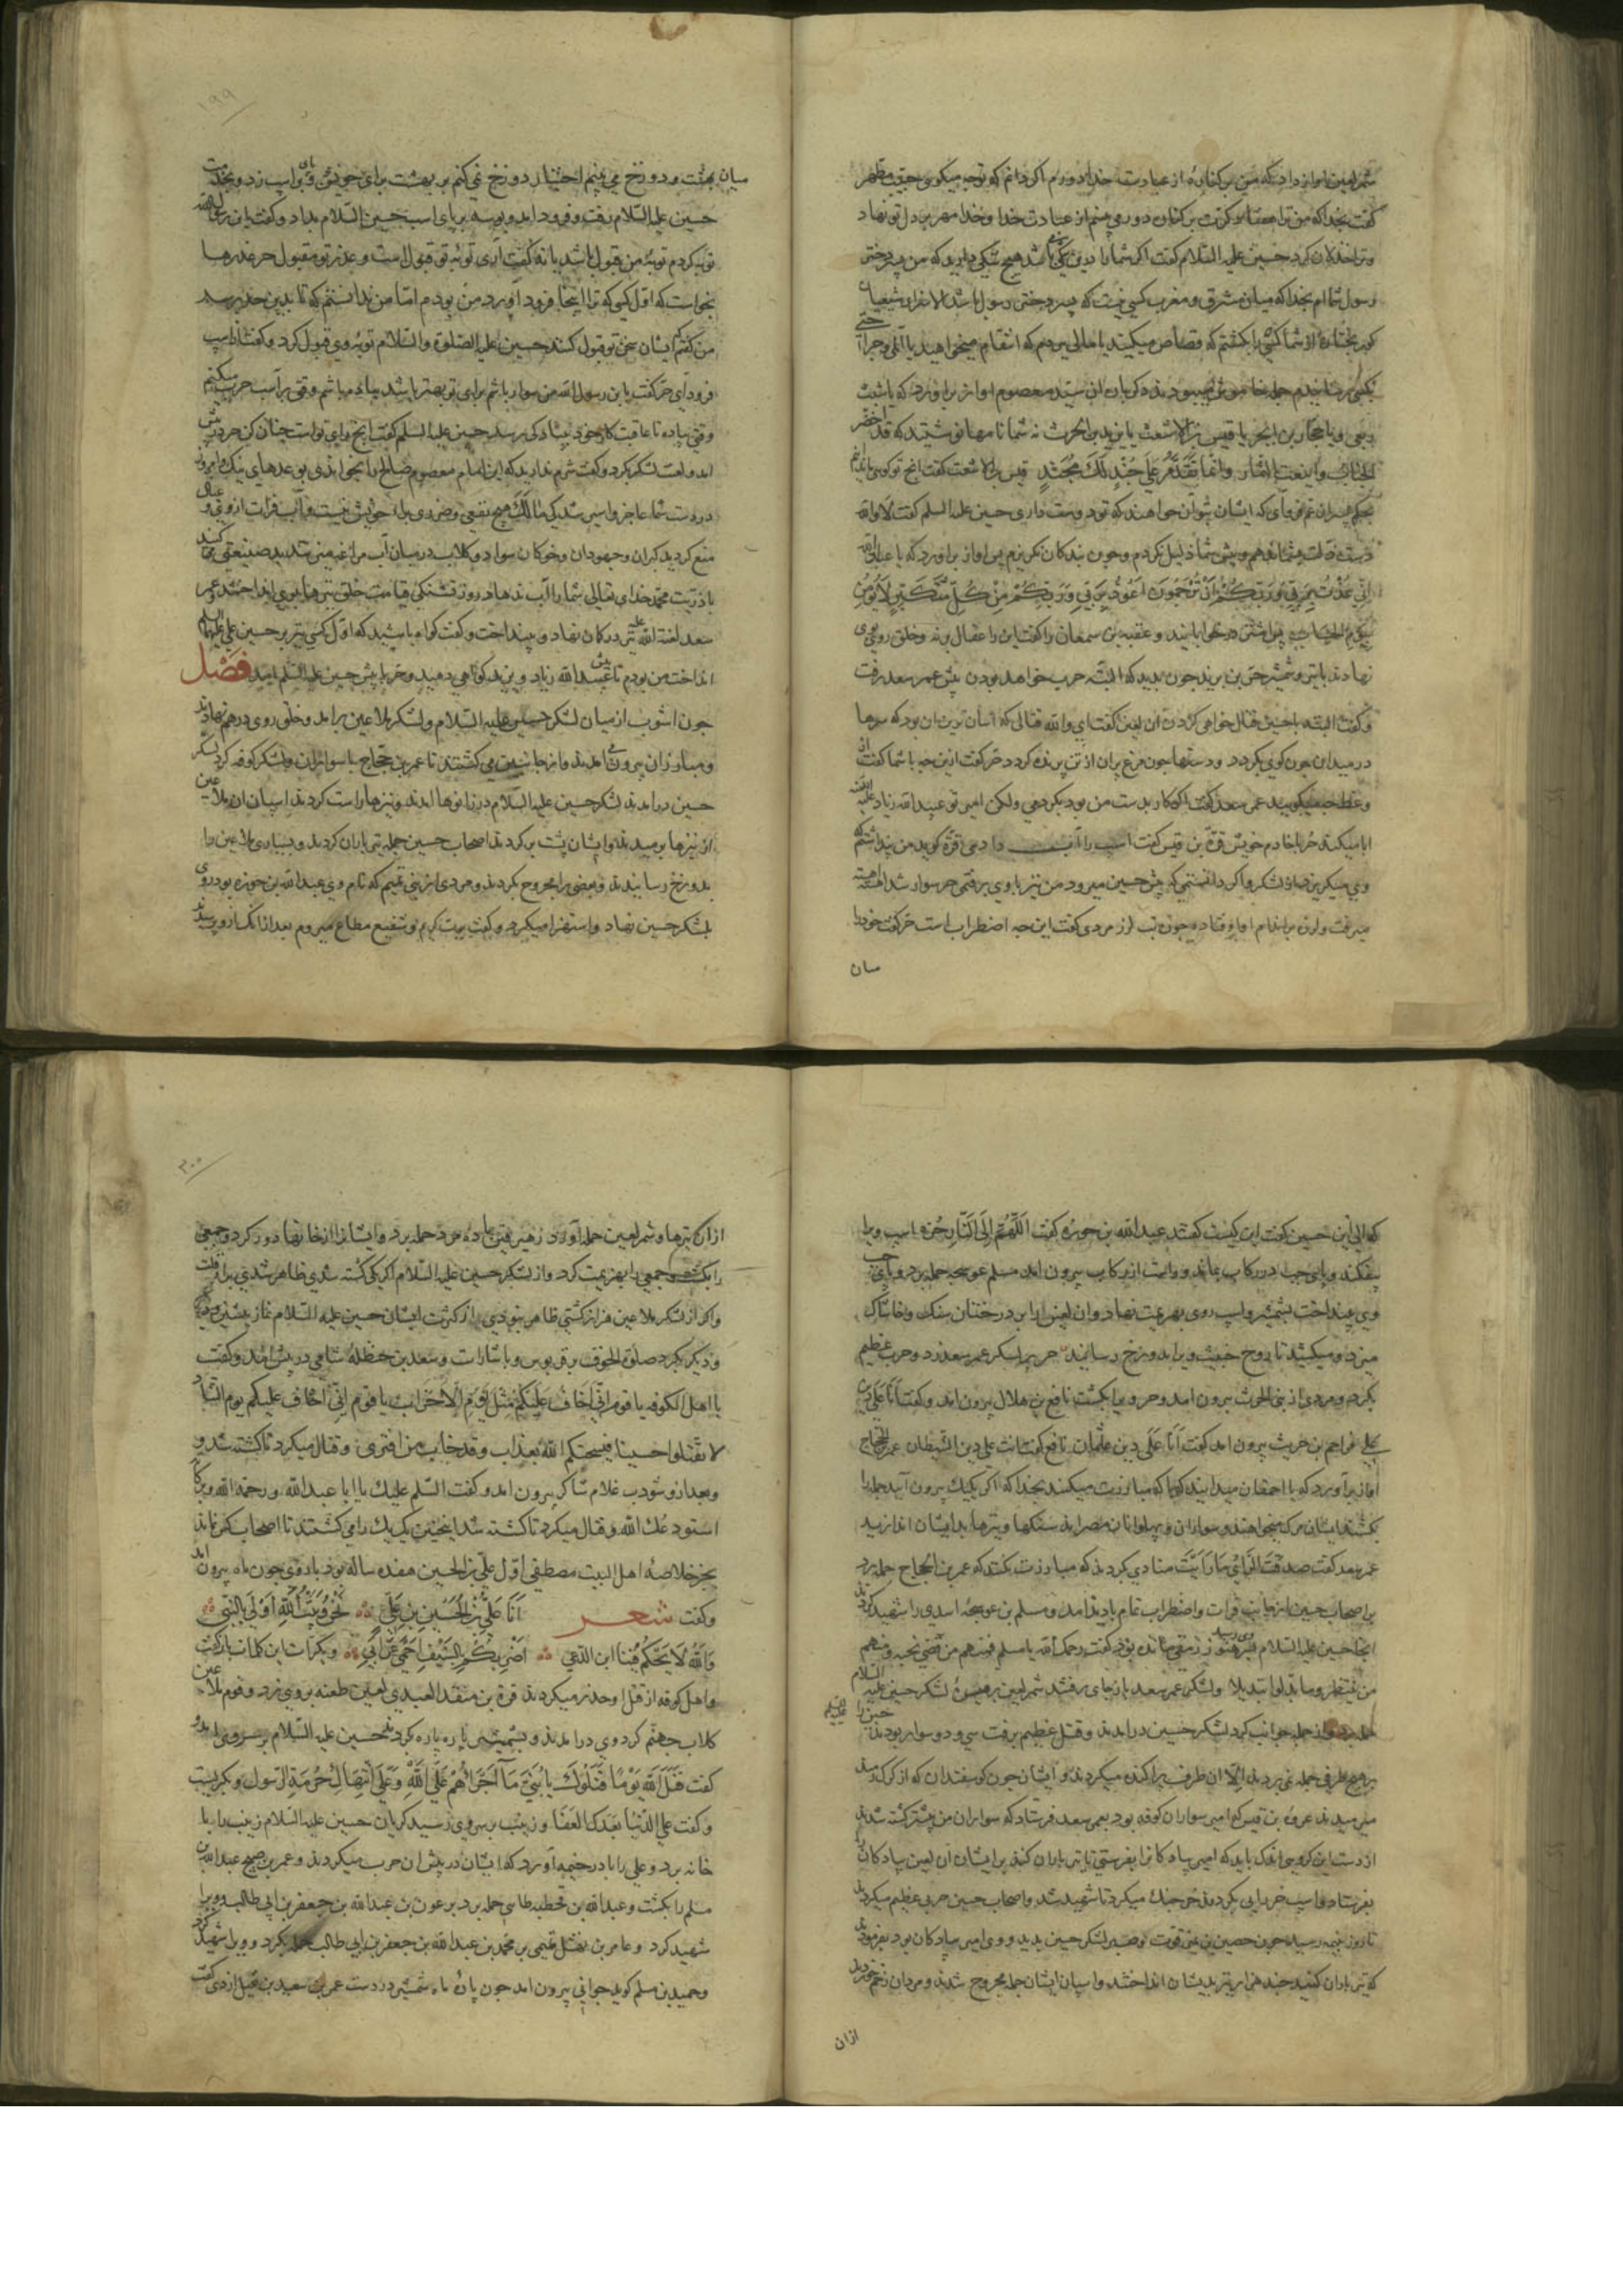 شمر لعین اواز داد که من بر کناره از عبادت خدا دورم اکر دانم که توجه میکوی حبیب مظهر
کفت بخدا که من ترا هفتاد کرت بر کنان دور می بینم از عبادت خدا و خدا مهر بر دل تو نهاد
وترا خذلان کرد حسین علیه السّلام کفت اکر شما را درین شکی باشد هیچ شکی دارید که من پسر دختر
رسول شماام بخدا که میان مشرق و مغرب کسی نیست که پسر دختر رسول باشد
از شما کسی را بکشتم که قصاص میکیند یا مالی بردم که انتقام میخواهید یا
جمله خاموش ببودند دکرباره ان سیّد معصوم اواز براورد که یا شبث
ربعی ویا حجار بن ابجر یا قیس بن الاشعث یا یزید بن الحرث نه شما نامها نوشتید که قد اخضر
الجناب واینعت الثمار وانما تقدم علی جند لک مجند قیس بن الاشعث کفت انچ تو کویی ما ندانیم
بحکم پسران عم فروآی که ایشان بتو آن خواهند که تو دوست داری حسین علیه السلم کفت لا والله
دست مذلت بشما ندهم و پیش شما ذلیل نکردم وچون بندکان نکریزم پس اواز براورد که یا عباد الله
انی عذت بربی وربکم ان ترجمون اعوذ بربی وربکم من کل متکبر لا یؤمن
بیوم الحساب پس اشتر درخوابانید و عقبه بن سمعان را کفت این را عقال برنه وخلق روی بوی
نهادند با تیر وشمشیر حر بن یزید جون بدید که البتّه حرب خواهد بودن پیش عمر سعد رفت
وکفت البته با حسین قتال خواهی کردن ان لعین کفت ای والله قتالی که اسان ترین ان بود که سرها
در میدان جون کوی بکردد ودستها جون مرغ پران از تن پرنده کردد حر کفت ازین جه با شما کفت از
وعظ جه میکویید عمر سعد کفت اکر کار بدست من بود بکردمی ولکن امیر تو عبید الله زیاد علیه اللعنه
ابا میکند حر با خادم خویش قرّة بن قیس کفت اسب را آب دادی قرّه کوید من پنداشتم که
وی میکریزد از لشکر واکر دانستمی که پیش حسین میرود من نیز با وی برفتمی حر سوار شد اهسته
میرفت ولرزه بر اندام او اوفتاده جون تب لرز مردی کفت این جه اضطراب است حر کفت خود را
میان
۱۹۹
میان بهشت ودوزخ می بینم اختیار دوزخ نمی کنم بر بهشت برای خویش وپای بر اسب زد وبخدمت
حسین علیه السّلام رفت وفرود امد وبوسه بر پای اسب حسین علیه السّلام بداد وکفت یابن رسول الله
توبه کردم توبهٔ من قبول باشد یا نه کفت آری توبه تو قبول است وعذر تو مقبول حر عذرها
بخواست که اوّل کسی که ترا اینجا فرود آورد من بودم امّا من ندانستم که تا بدین حد برسد
من کفتم ایشان سخن تو قبول کنند حسین علیه الصّلوة والسّلام توبهٔ وی قبول کرد وکفت از اسپ
فرودآی حر کفت یابن رسول الله من سوار باشم برای تو بهتر باشد پیاده باشم وقتی بر اسب حرب میکنم
وقتی پیاده تا عاقبت کار خود به پیادکی رسد حسین علیه السلم کفت انچ رای تو است چنان کن حر در پیش
امد ولعنت لشکر بکرد وکفت شرم ندارید که این امام معصوم صالح را بخواندی بوعدهای نیک وامروز
در دست شما عاجز واسیر شد یکی ما لک هیچ نفعی وضرری برای خویش نیست وآب فرات از وی و عیال
منع کردید کبران وجهودان وخوکان سواد وکلاب در میان آب مراغه میزنند بد صنیعتی می کنید
با ذریّت محمّد خدای تعالی شما را آب ندهاد روز تشنکی قیامت خلق تیرها بوی انداختند عمر
سعد لعنة الله علیه تیر در کمان نهاد وبینداخت وکفت کواه باشید که اوّل کسی تیر بر حسین علی علیهما السلم
انداخت من بودم تا پیش عبید الله زیاد ویزید کواهی دهید وحر با پیش حسین علیه السّلم امد فصل
جون اشوب از میان لشکر حسین علیه السّلام ولشکر ملاعین برامد وخلق روی درهم نهادند
ومبارزان بیرون می امدند واز جانبین می کشتند تا عمر بن حجّاج با سواران ولشکر کوفه کرد لشکر
حسین درامدند لشکر حسین علیه السّلام در زانوها امدند ونیزها راست کردند اسپان ان ملاعین
از نیزها برمیدند وایشان پشت برکردند اصحاب حسین جمله تیرباران کردند وبسیاری ملاعین را
بدوزخ رسانیدند وبعضی را مجروح بکردند ومردی از بنی تمیم که نام وی عبد الله بن حوزه بود روی
بلشکر حسین نهاد واستهزا میکرد وکفت برب کریم وشفیع مطاع میروم بعد ازانک از وی پرسیدند
که الی این حسین کفت این کیست کفتند عبد الله بن حوزه کفت اللّهُمَّ الی النّار حُزه اسپ ویرا
بیفکند وپای چپ در رکاب بماند وراست از رکاب بیرون امد مسلم عوسجه حمله برد وپای
وی بینداخت بشمشیر واسپ روی بهزیمت نهاد وان لعین را بر درختان وسنک وخاشاک
میزد ومیکشید تا روح خبیث ویرا بدوزخ رسانید حر بر لشکر عمر سعد زد وحرب عظیم
بکرد ومردی از بنی الحرث بیرون امد وحر ویرا بکشت نافع بن هلال بیرون امد وکفت اَنَا عَلی دین
علی مزاحم بن حریث بیرون امد کفت اَنَا عَلَی دین عثمان نافع کفت انت علی دین الشیطان عمر الحجاج
اواز براورد که یا احمقان میدانید که با که مبارزت میکنند بخدا که اکر یکیک بیرون آیید جمله را
بکشند ایشان مرک میخواهند وسواران وپهلوانان مصراند سنکها وتیرها بدیشان اندازید
عمر سعد کفت صدقت الرّای ما رَاَیتَ منادی کردند که مبارزت مکنند که عمر بن الحجاج حمله برد
بر اصحاب حسین از جانب فرات واضطراب تمام بادید امد ومسلم بن عوسجه اسدی را شهید کردند
انجا حسین علیه السّلام بوی رسید هنوز رمقی مانده بود کفت رحمک الله یا مسلم فمنهم من قضی نحبه ومنهم
من ینتظر وما بدّلوا تبدیلا ولشکر عمر سعد باز جای رفتند شمر لعین بر میسرهٔ لشکر حسین علیه السلام
حمله برد واز جمله جوانب کرد لشکر حسین درامدند وقتل عظیم برفت سی ودو سوار بودند حسین را علیه السلم
بر هیچ طرفی حمله نمی بردند الّا ان طرف پراکنده میکردند وایشان جون کوسفندان که از کرک رمند
میرمیدند عروه بن قیس که امیر سواران کوفه بود بعمر سعد فرستاد که سواران من بیشتر کشته شدند
از دست این کروه اندک باید که امیر پیادکانرا بفرستی تا تیرباران کنند بر ایشان ان لعین پیادکان را
بفرستاد واسپ حر را پی بکردند حر جنک میکرد تا شهید شد واصحاب حسین حربی عظیم میکردند
تا روز بنیمه رسید جون حصین بن نمیر قوت وصبر لشکر حسین بدید ووی امیر پیادکان بود بفرمود
که تیرباران کنند چند هزار تیر بدیشان انداختند واسپان ایشان جمله مجروح شدند ومردان زخم خوردند
ازان
۲۰۰
ازان تیرها وشمر لعین حمله آورد زهیر قین با ده مرد حمله برد وایشانرا از خانها دور کرد وجمعی
را بکشت وجمعی را بهزیمت کرد واز لشکر حسین علیه السّلام اکر یکی کشته شدی ظاهر شدی برای قلت
واکر از لشکر ملاعین هزار کشتی ظاهر نبودی از کثرت ایشان حسین علیه السّلام نماز پیشین
ودیکر بکرد صلوة الخوف برقربوس وباشارات وسعد بن حنظلهٔ شامی در پیش امد وکفت
یا اهل الکوفه یا قوم انّی اَخَافُ عَلَیکُم مِثلَ یَومِ الاحزاب یا قوم انّی اخاف علیکم یوم التناد
لا تقتلوا حسینا فیسحتکم الله بعذاب وقد خاب من افتری وقتال میکرد تا کشته شد و
وبعد ازو شوذب غلام شاکر بیرون امد وکفت السّلم علیک یا ابا عبد الله ورحمة الله وبرکاته
استودعک الله وقتال میکرد تا کشته شد اینچنین یک یک را می کشتند تا اصحاب کس نماند
بجز خلاصهٔ اهل البیت مصطفی اوّل علی بن الحسین هفده ساله بود با روی جون ماه بیرون امد
وکفت شعر اَنَا عَلیّ بن الحُسَین بن عَلِی نَحنُ وَبَیتُ اللهِ اَولَی بِالنَّبی
وَاللهِ لَا یَحکُمُ فینا ابن الدّعی اَضرِبکُم بِالسَّیفِ اَحمی عَن اَبی وبکرّات این کلمات بازکفت
واهل کوفه از قتل او حذر میکردند قرة بن منقذ العبدی لعین طعنه بر وی زد وقوم ملاعین
کلاب جهنم کرد وی درامدند وبشمشیر پاره پاره کردند حسین علیه السّلام بر سر وی امد
کفت قَتَلَ اللهُ قَومًا قَتَلُوکَ یا بُنَیَّ مَا اَجرَاَهُم عَلَی اللهِ وَعَلَی انتِهَاکِ حُرمَةِ الرّسول وبکریست
وکفت علی الدّنیا بَعدَکَ العَفَا وزینب بر سر وی رسید کریان حسین علیه السّلام زینب را با
خانه برد وعلی را با در خیمه آورد که ایشان در پیش ان حرب میکردند وعمر بن صبیح عبد الله بن
مسلم را بکشت وعبد الله بن قحطبه طاسی حمله برد بر عون بن عبد الله بن جعفر بن ابی طالب ویرا
شهید کرد وعامر بن نهشل تمیمی بر محمد بن عبد الله بن جعفر بن ابی طالب حمله بکرد وویرا شهید کرد
وحمید بن مسلم کوید جوانی بیرون امد جون پارهٔ ماه شمشیر در دست عمر بن سعید بن نفیل ازدی کفت